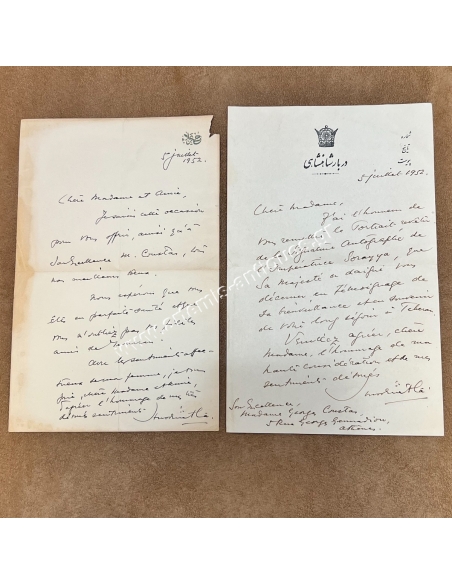 5 juillet
1952.
Chère Madame et Amie,
Je saisis cette occasion
pour vous offrir, ainsi qu'à
Son Excellence M. Coustas, tous
nos meilleurs vœux.
Nous espérons que vous
êtes en parfaite santé et que
vous n'oubliez pas
amis de
Avec les sentiments
de ma femme, je vous
prie, chère Madame et Amie,
l'hommage de mes
sentiments
دربار شاهنشاهی
شماره
تاریخ
پیوست
5 juillet 1952.
Chère Madame,
J'ai l'honneur de
vous remettre le Portrait
de Autographe de
l'Impératrice Sorayya, que
Sa Majesté a daigné vous
décerner en Témoignage de
Sa bienveillance et en souvenir
de votre long séjour à Teheran
Veuillez agréer, chère
Madame, l'hommage de ma
haute considération et de mes
sentiments
Son Excellence,
Madame Georges Coustas,
5 Rue George Gennadiou,
Athènes.